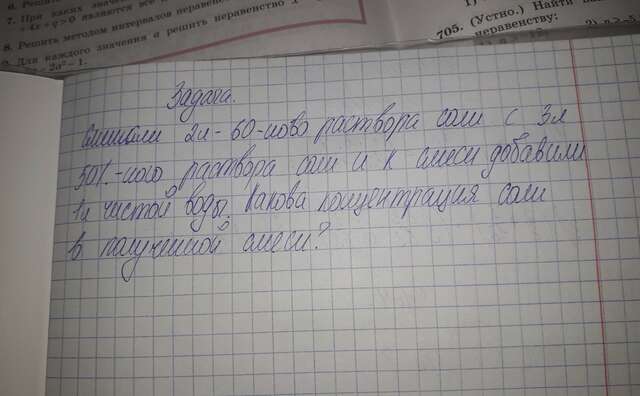 6. Решить
7. При каких значе
+ 4x + q > 0 являются все
8. Решить методом интервалов неравен
9. Для каждого значения a решить неравенство
2a² − 1.
705. (Устно.) Найти
неравенству:
Задача.
Смешали 2л - 60-ного раствора соли с 3л
50%.-ного раствора соли и к смеси добавили
1л чистой воды. Какова концентрация соли
в полученной смеси?